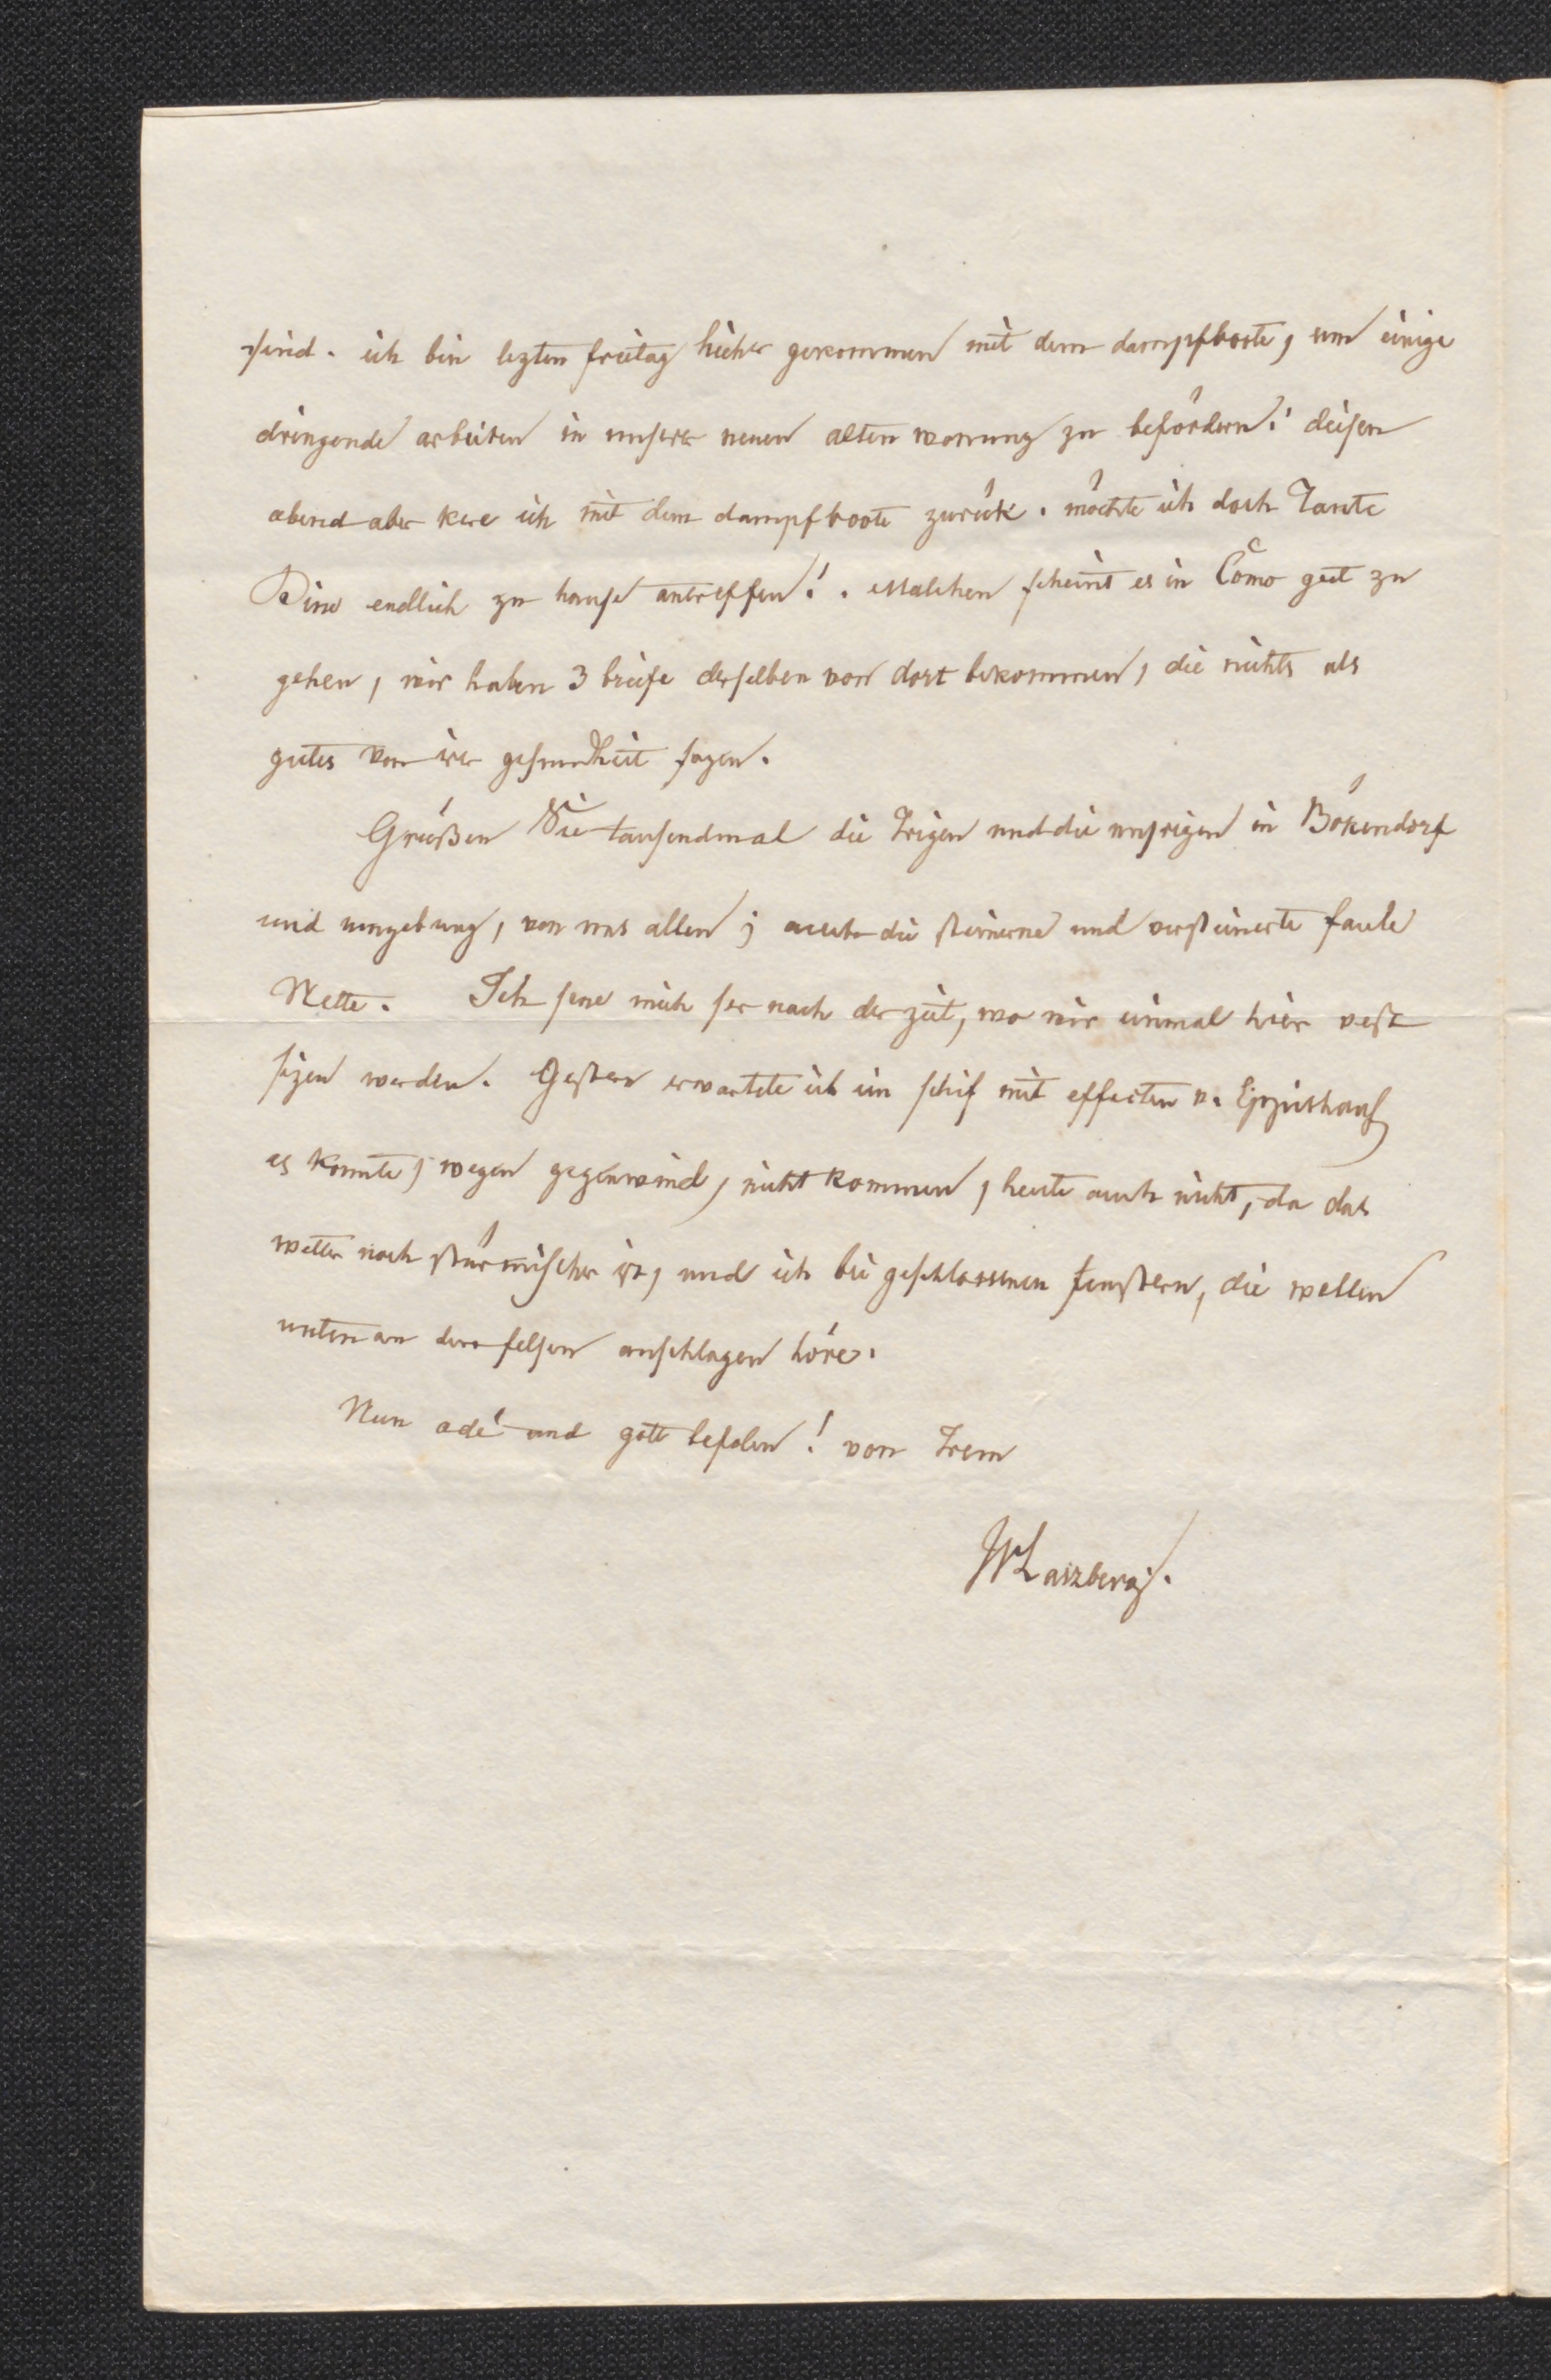 sind. ich bin lezten freitag hieher gekommen mit dem dampfboote, um einige
dringende arbeiten in unserer neuen alten wonung zu befördern: disen
abend aber kere ich mit dem dampfboote zurük. möchte ich doch Tante
Dine endlich zu hause antreffen!. Malchen scheint es in Como gut zu
gehen, wir haben 3 briefe derselben von dort bekommen, die nichts als
gutes von irer gesundheit sagen.
Grüßen Sie tausendmal die Irigen und die unsrigen in Bökendorf
und umgebung, von uns allen; auch die steinerne und versteinerte faule
Nette. Ich sene mich ser nach der zeit, wo wir einmal hier vest
sizen werden. Gestern erwartete ich ein schif mit effecten v. Eppishaus
es konnte, wegen gegenwind, nicht kommen, heute auch nicht, da das
wetter noch stürmischer ist, und ich bei geschlossenen fenstern, die wellen
unten an den felsen anschlagen höre.
Nun adé und gott befolen! von Irem
JvLaszberg.